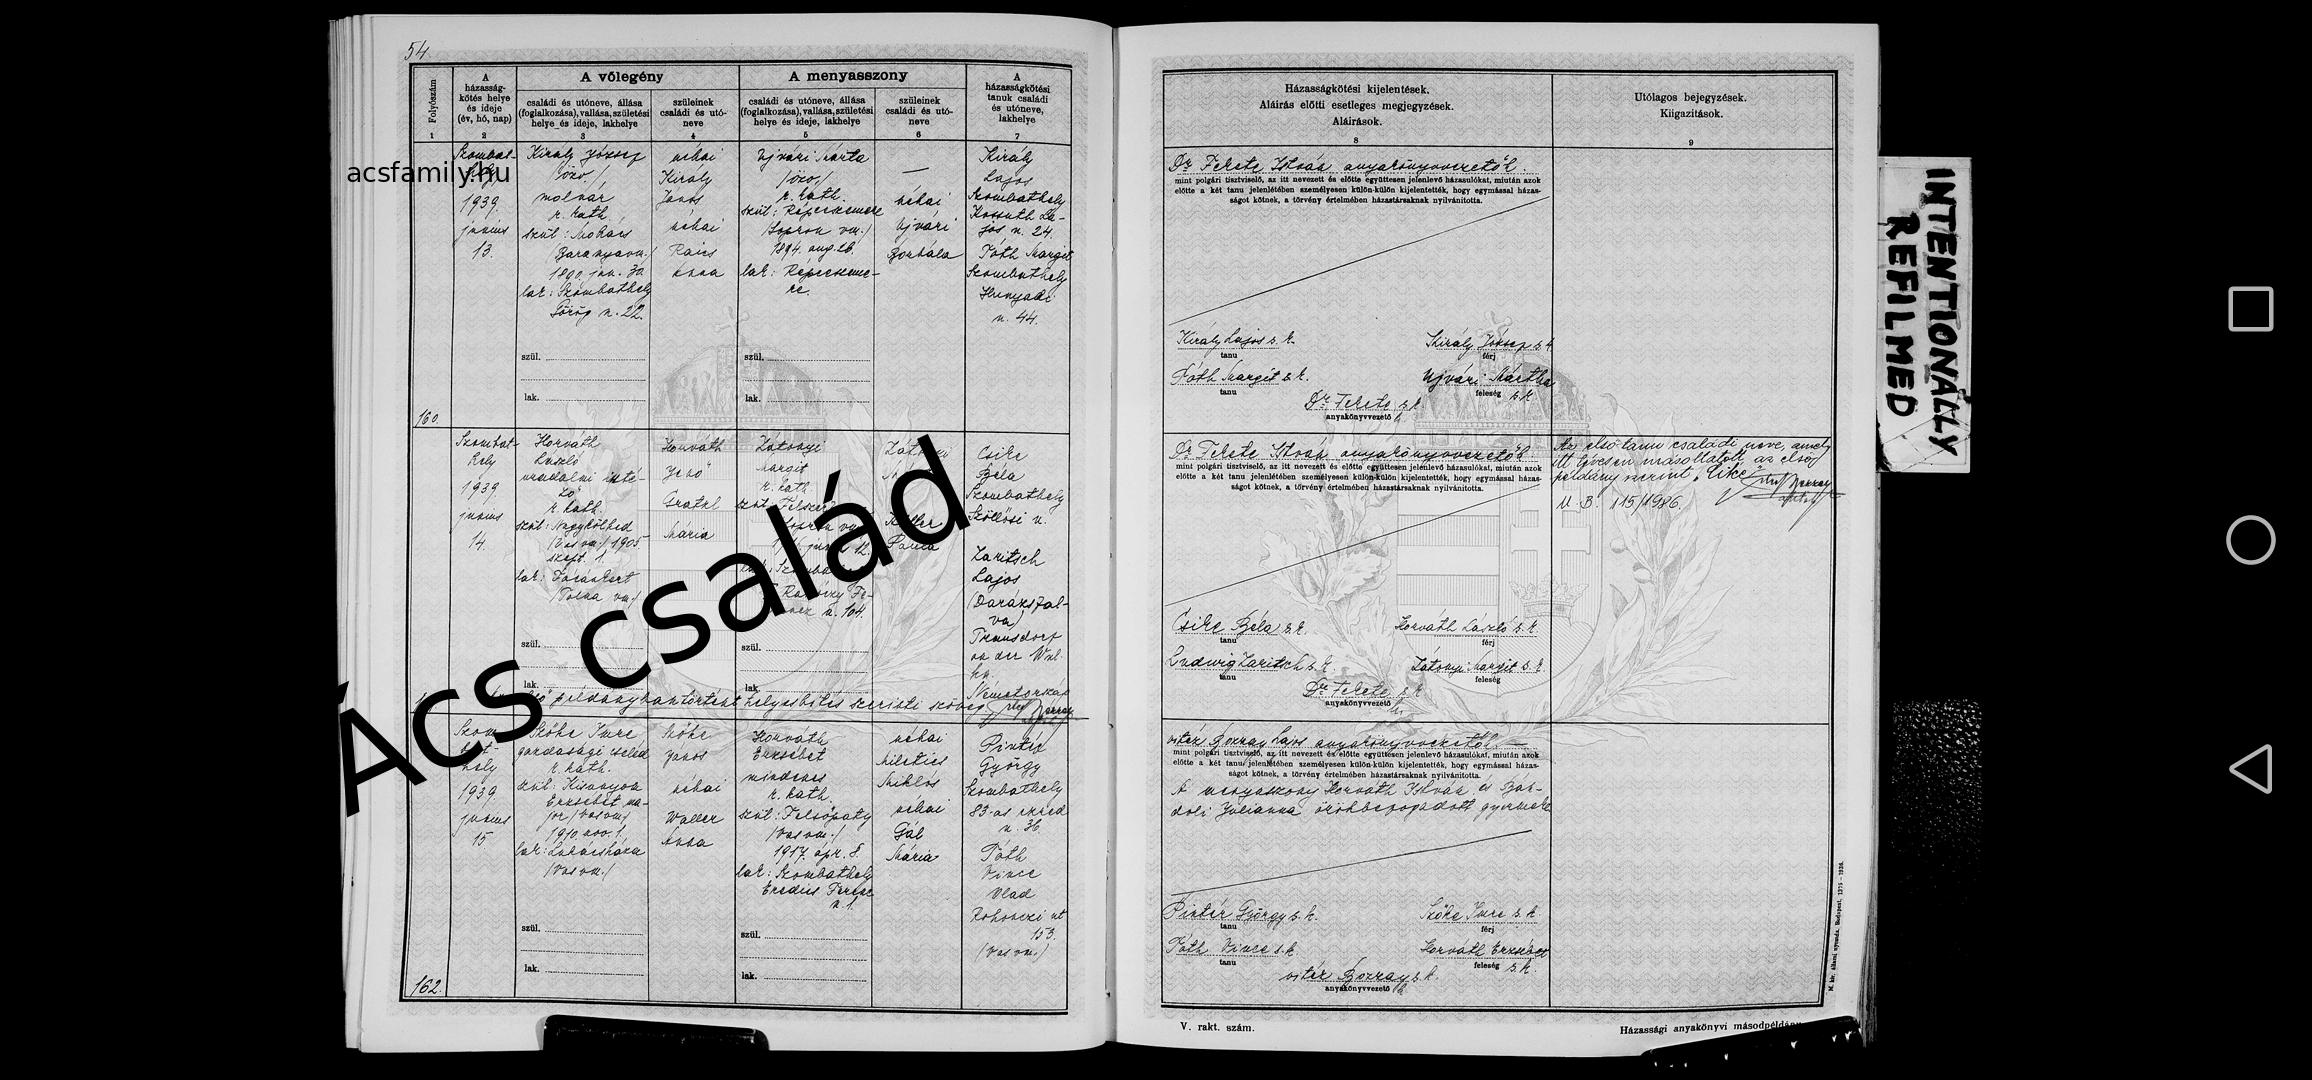 54
A vőlegény
A menyasszony
Folyószám
A
házasság-
kötés helye
és ideje
(év, hó, nap)
családi és utóneve, állása
(foglalkozása), vallása, születési
helye és ideje, lakhelye
szüleinek
családi és utó-
neve
családi és utóneve, állása
(foglalkozása), vallása, születési
helye és ideje, lakhelye
szüleinek
családi és utó-
neve
A
házasságkötési
tanuk családi
és utóneve,
lakhelye
1
2
3
4
5
6
7
Szombat-
1939.
június
13.
Király József
/özv./
molnár
r. kath.
szül: Mohács
/Baranyavm./
lak: Szombathely
Görög u. 22.
szül.
lak.
néhai
Király
János
néhai
Anna
Ujvári Márta
/özv./
r. kath.
szül: Répceszemere
/Sopron vm./
1894. aug. 26.
lak: Répceszeme-
re.
szül.
lak.
—
néhai
Ujvári
Borbála
Király
Lajos
Szombathely
Kossuth La-
jos u. 24.
Tóth Margit
Szombathely
Hunyadi
u. 44.
160.
acsfamily.hu
Szombat-
hely
1939.
június
14.
Horváth
László
uradalmi inté-
ző
r. kath.
szül: Nagykölked
/Vas vm./ 1905.
szept. 1.
lak:
/Tolna vm./
szül.
lak.
Horváth
Jenő
Mária
Zátonyi
Margit
r. kath.
u. 104.
szül.
lak.
Paula
Csike
Béla
Szombathely
Szőllősi u.
Zaritsch
Lajos
(Darázsfal-
va)
Trausdorf
an der Wul-
ka.
Németország
példányban történt helyesbítés szerinti szöveg.
Ács család
Szom-
bat-
hely
1939.
június
15.
Szőke Imre
gazdasági cseléd
r. kath.
szül: Kisunyom
Erzsébet ma-
jor /Vas vm./
1910. nov. 1.
lak: Lukácsháza
/Vas vm./
szül.
lak.
Szőke
János
néhai
Waller
Anna
Horváth
Erzsébet
mindenes
r. kath.
szül: Felsőpaty
/Vas vm./
1917. ápr. 8.
lak: Szombathely
Ferenc
u. 1.
szül.
lak.
néhai
Miletics
Miklós
néhai
Gál
Mária
Pintér
György
Szombathely
83-as ezred
u. 36.
Tóth
Vince
Vlad
Rohonczi út
153.
(Vas vm.)
162.
Házasságkötési kijelentések.
Aláírás előtti esetleges megjegyzések.
Aláírások.
8
Utólagos bejegyzések.
Kiigazítások.
9
Dr. Fekete István anyakönyvvezető
mint polgári tisztviselő, az itt nevezett és előtte együttesen jelenlevő házasulókat, miután azok
előtte a két tanu jelenlétében személyesen külön-külön kijelentették, hogy egymással házas-
ságot kötnek, a törvény értelmében házastársaknak nyilvánította.
Király Lajos s. k.
tanu
Király József s. k.
férj
Tóth Margit s. k.
tanu
Ujvári Mártha
feleség s. k.
Dr. Fekete s. k.
anyakönyvvezető
Dr. Fekete István anyakönyvvezető
mint polgári tisztviselő, az itt nevezett és előtte együttesen jelenlevő házasulókat, miután azok
előtte a két tanu jelenlétében személyesen külön-külön kijelentették, hogy egymással házas-
ságot kötnek, a törvény értelmében házastársaknak nyilvánította.
Az első tanu családi neve, amely
itt tévesen másoltatott az első
példány szerint
U. B. 115/1986.
Csike Béla s. k.
tanu
Horváth László s. k.
férj
Ludwig Zaritsch s. k.
tanu
Zátonyi Margit s. k.
feleség
Dr. Fekete s. k.
anyakönyvvezető
vitéz Bozzay Lajos anyakönyvvezető
mint polgári tisztviselő, az itt nevezett és előtte együttesen jelenlevő házasulókat, miután azok
előtte a két tanu jelenlétében személyesen külön-külön kijelentették, hogy egymással házas-
ságot kötnek, a törvény értelmében házastársaknak nyilvánította.
A menyasszony Horváth István és
Julianna örökbefogadott gyermeke
Pintér György s. k.
tanu
Szőke Imre s. k.
férj
Tóth Vince s. k.
tanu
Horváth Erzsébet
feleség s. k.
vitéz Bozzay s. k.
anyakönyvvezető
V. rakt. szám.
Házassági anyakönyvi másodpéldány
M. kir. állami nyomda. Budapest, 1375 – 1936.
INTENTIONALLY
REFILMED